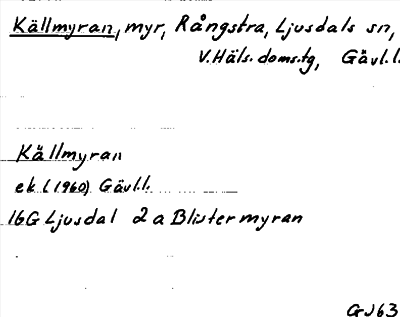 Källmyran, myr, Rångstra, Ljusdals sn,
V.Häls.doms.tg, Gävl.l.
Källmyran
ek (1960) Gävl.l.
16G Ljusdal 2a Blistermyran
GJ63